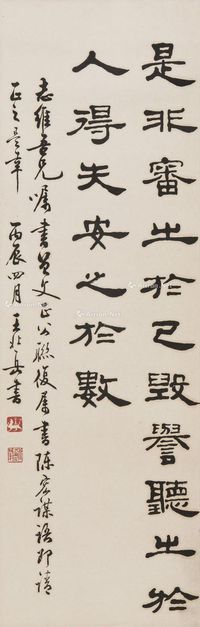 是非審之於己毀譽聽之於
人得失安之於數
志維吾兄囑書曾文正公聯復屬書陳宏謀語即請
正之 是幸 丙辰四月 王北岳書